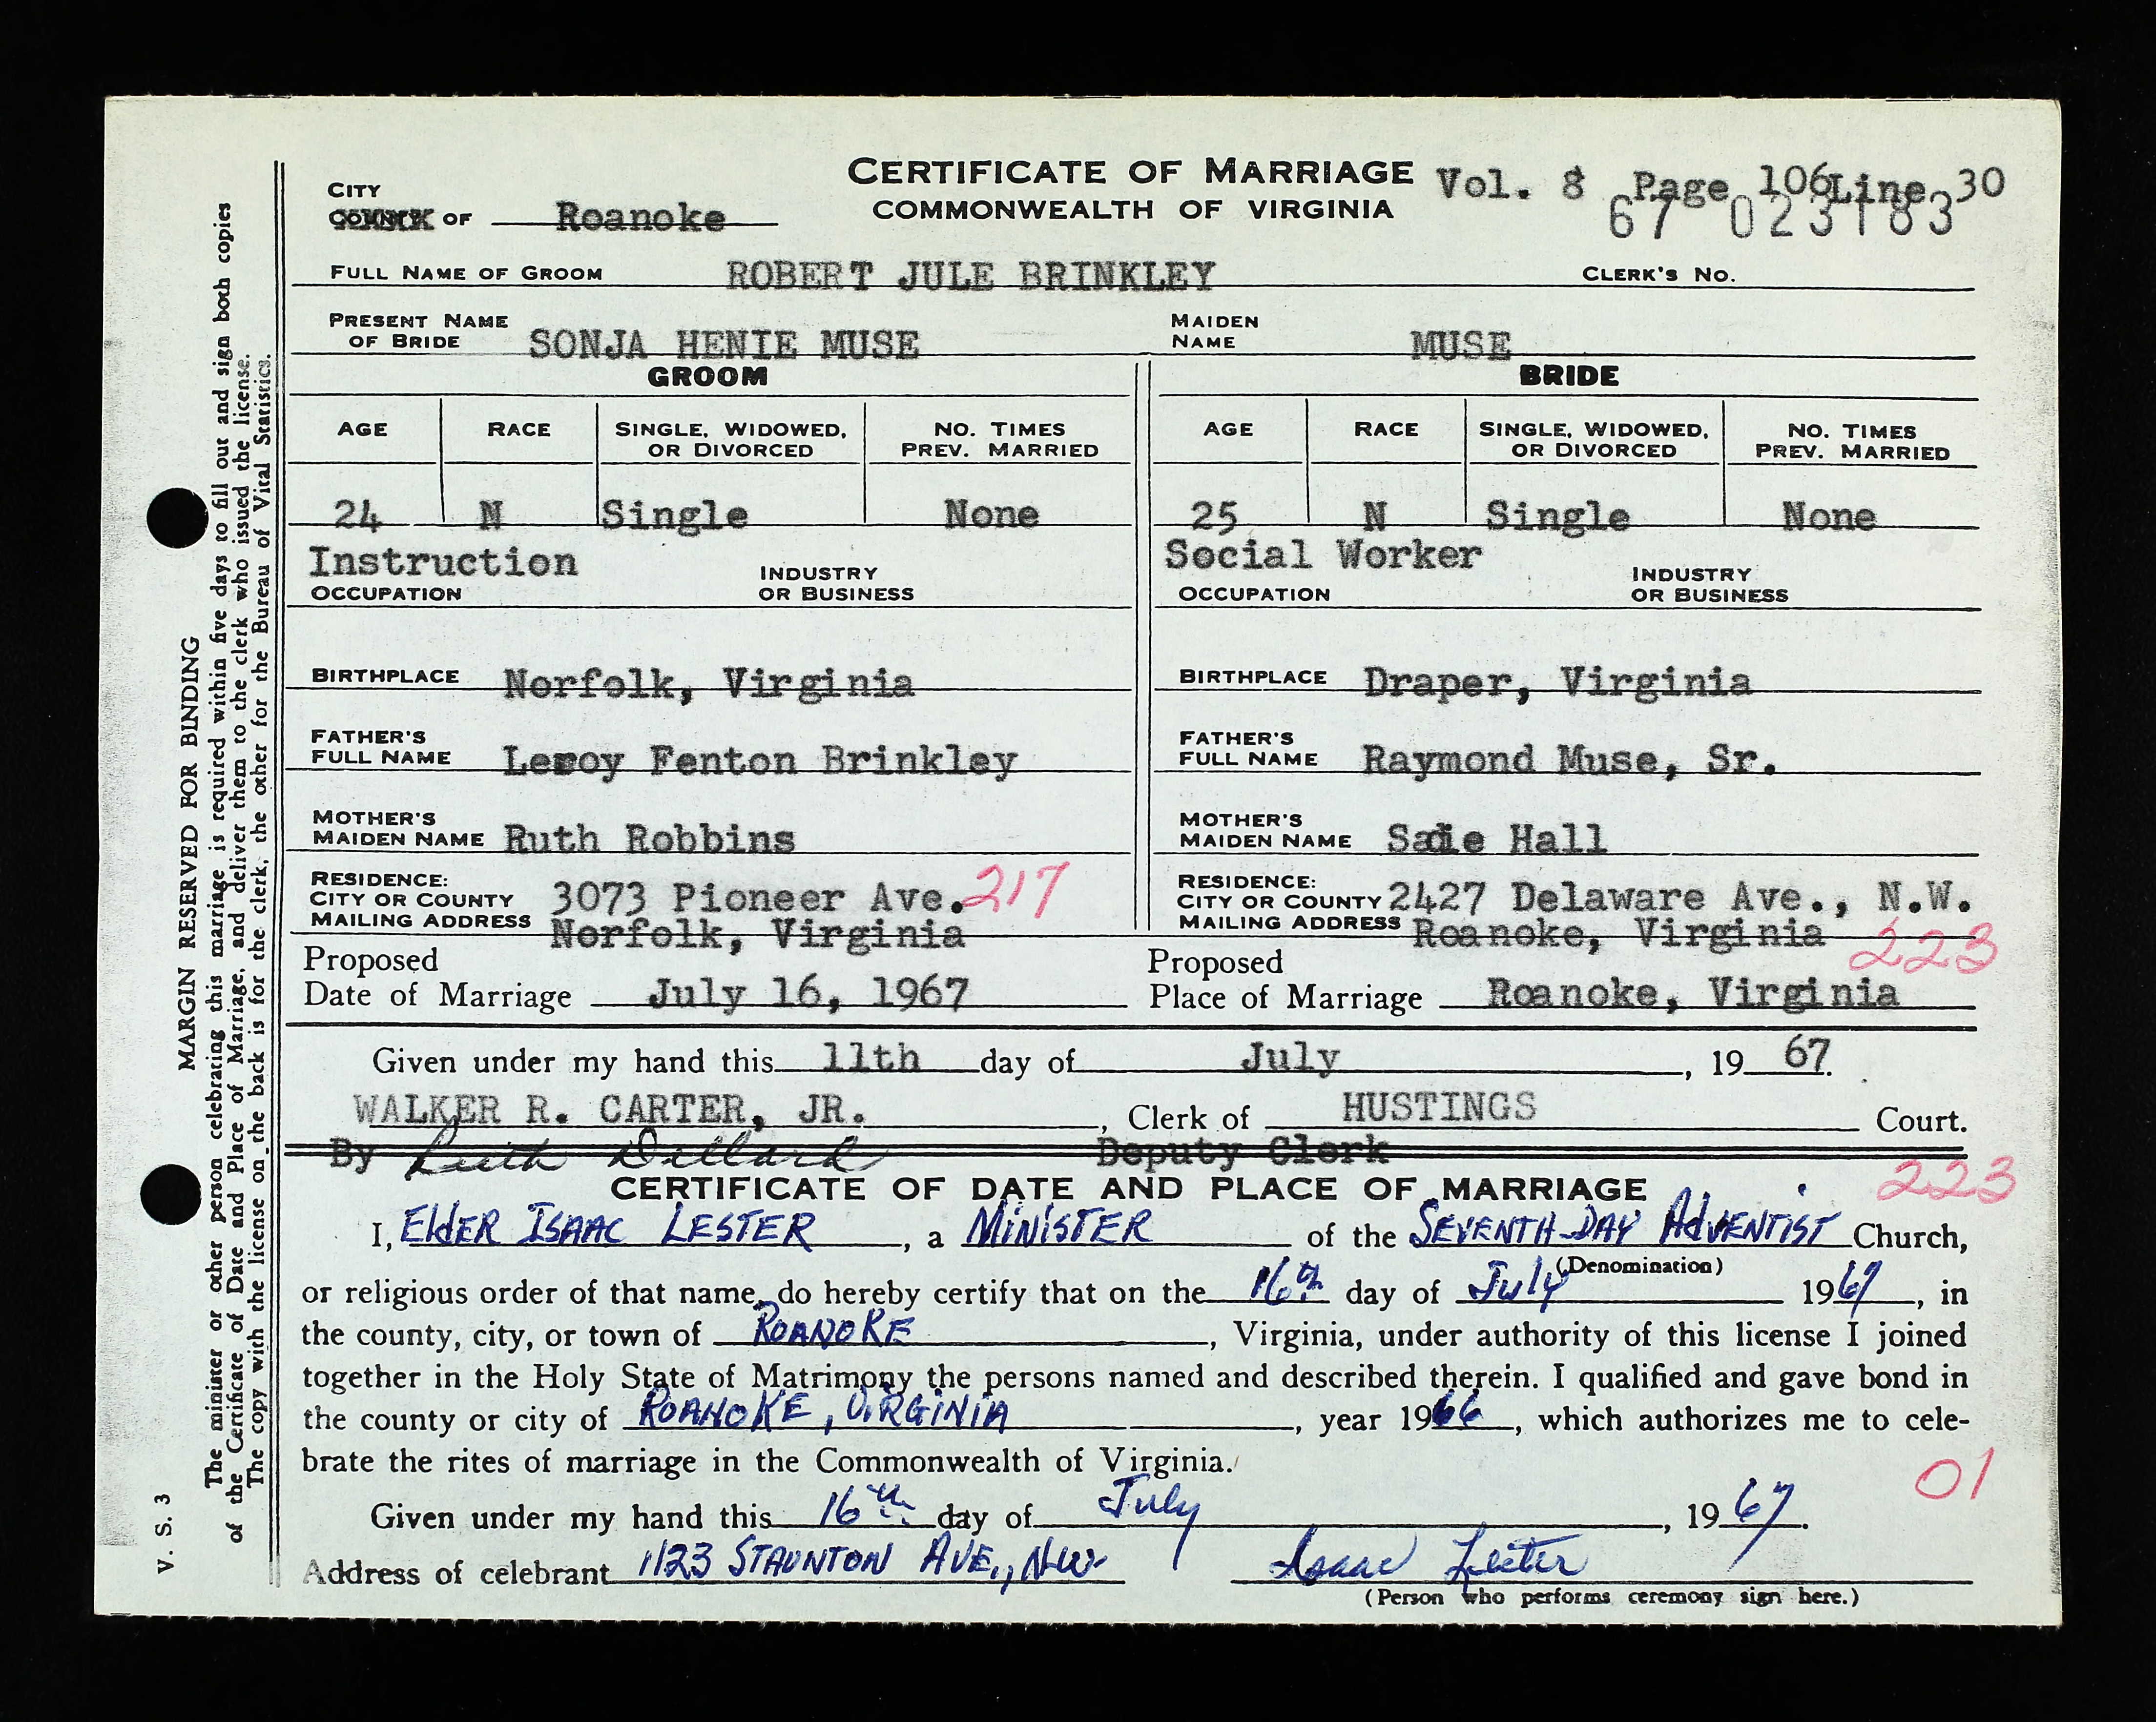 CERTIFICATE OF MARRIAGE
COMMONWEALTH OF VIRGINIA
Vol. 8 Page 106 Line 30
67 023183
CITY
COUNTY OF Roanoke
FULL NAME OF GROOM ROBERT JULE BRINKLEY CLERK'S NO.
PRESENT NAME OF BRIDE SONJA HENIE MUSE MAIDEN NAME MUSE
GROOM BRIDE
AGE RACE SINGLE, WIDOWED, OR DIVORCED NO. TIMES PREV. MARRIED AGE RACE SINGLE, WIDOWED, OR DIVORCED NO. TIMES PREV. MARRIED
24 N Single None 25 N Single None
Instruction Social Worker
OCCUPATION INDUSTRY OR BUSINESS OCCUPATION INDUSTRY OR BUSINESS
BIRTHPLACE Norfolk, Virginia BIRTHPLACE Draper, Virginia
FATHER'S FULL NAME Leroy Fenton Brinkley FATHER'S FULL NAME Raymond Muse, Sr.
MOTHER'S MAIDEN NAME Ruth Robbins MOTHER'S MAIDEN NAME Sadie Hall
RESIDENCE: CITY OR COUNTY MAILING ADDRESS 3073 Pioneer Ave. 217 Norfolk, Virginia
RESIDENCE: CITY OR COUNTY MAILING ADDRESS 2427 Delaware Ave., N.W. Roanoke, Virginia 223
Proposed Date of Marriage July 16, 1967 Proposed Place of Marriage Roanoke, Virginia
Given under my hand this 11th day of July, 1967.
WALKER R. CARTER, JR., Clerk of HUSTINGS Court.
By Ruth Dillard Deputy Clerk
223
CERTIFICATE OF DATE AND PLACE OF MARRIAGE
I, ElDER ISAAC LESTER, a MINISTER of the SEVENTH-DAY AdVENTIST Church,
(Denomination)
or religious order of that name, do hereby certify that on the 16th day of July 1967, in
the county, city, or town of ROANOKE, Virginia, under authority of this license I joined
together in the Holy State of Matrimony the persons named and described therein. I qualified and gave bond in
the county or city of ROANOKE, VIRGINIA, year 1966, which authorizes me to cele-
brate the rites of marriage in the Commonwealth of Virginia.
01
Given under my hand this 16th day of July, 1967.
Address of celebrant 1123 STAUNTON AVE., NW. Isaac Lester
(Person who performs ceremony sign here.)
MARGIN RESERVED FOR BINDING
The minister or other person celebrating this marriage is required within five days to fill out and sign both copies
of the Certificate of Date and Place of Marriage, and deliver them to the clerk who issued the license.
The copy with the license on the back is for the clerk, the other for the Bureau of Vital Statistics.
V. S. 3